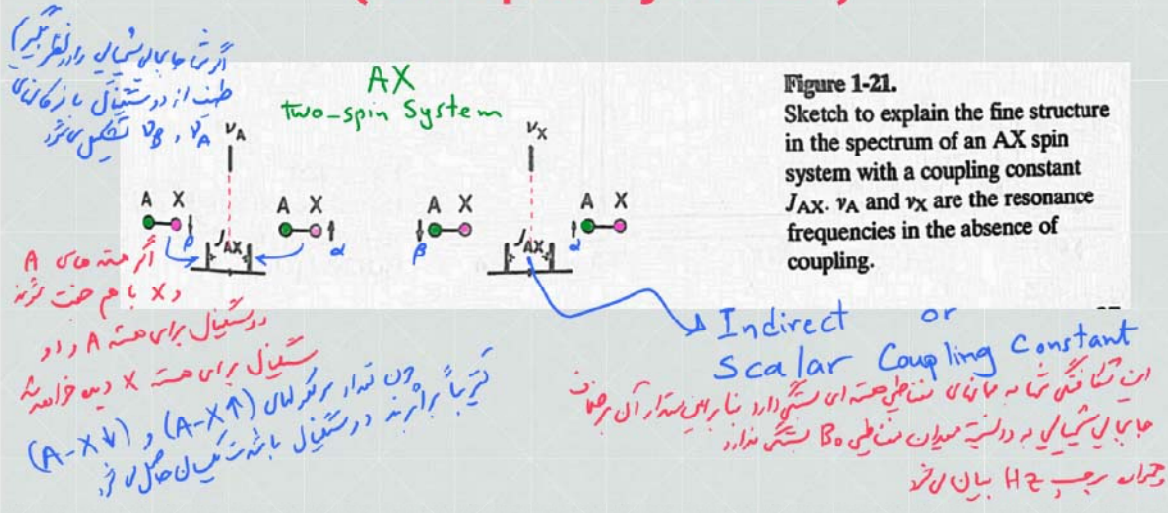 اگر تنها جابجایی شیمیایی را در نظر بگیریم
طیف از دو سیگنال با فرکانسهای
νA , νB تشکیل می شود
AX
two-spin System
νA
νX
A X
A X
A X
A X
β
α
β
α
JAX
JAX
Figure 1-21.
Sketch to explain the fine structure
in the spectrum of an AX spin
system with a coupling constant
JAX. νA and νX are the resonance
frequencies in the absence of
coupling.
اگر هسته های A
و X با هم جفت شوند
دو سیگنال برای هسته A و دو
سیگنال برای هسته X دیده خواهد شد
چون تعداد مولکولهای (A-X↑) و (A-X↓)
تقریباً برابرند دو سیگنال با شدت یکسان حاصل می شود
Indirect or
Scalar Coupling Constant
این شکافتگی تنها به مغناطیسی هسته ای بستگی دارد بنابراین مقدار آن برخلاف
جابجایی شیمیایی به میدان مغناطیسی B0 بستگی ندارد
برحسب Hz بیان می شود